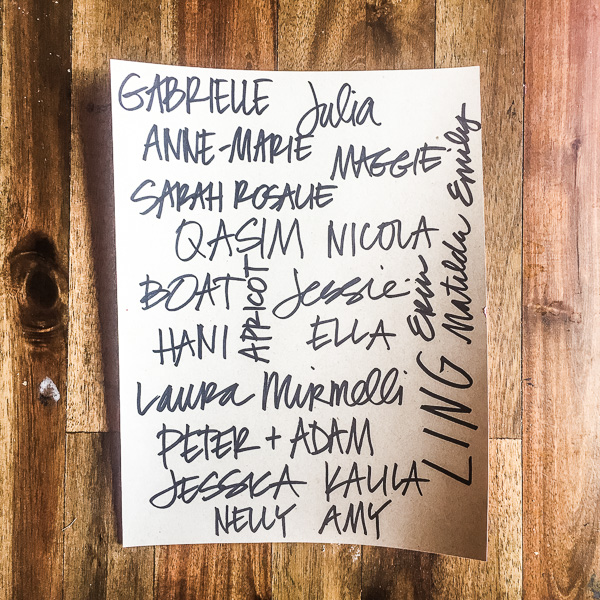 GABRIELLE Julia
ANNE-MARIE MAGGIE
SARAH ROSALIE
QASIM NICOLA
BOAT APRICOT Jessie
HANI ELLA
Laura Mirmelli
PETER + ADAM
JESSICA KALILA
NELLY AMY
LING Erin
Matilda Emily